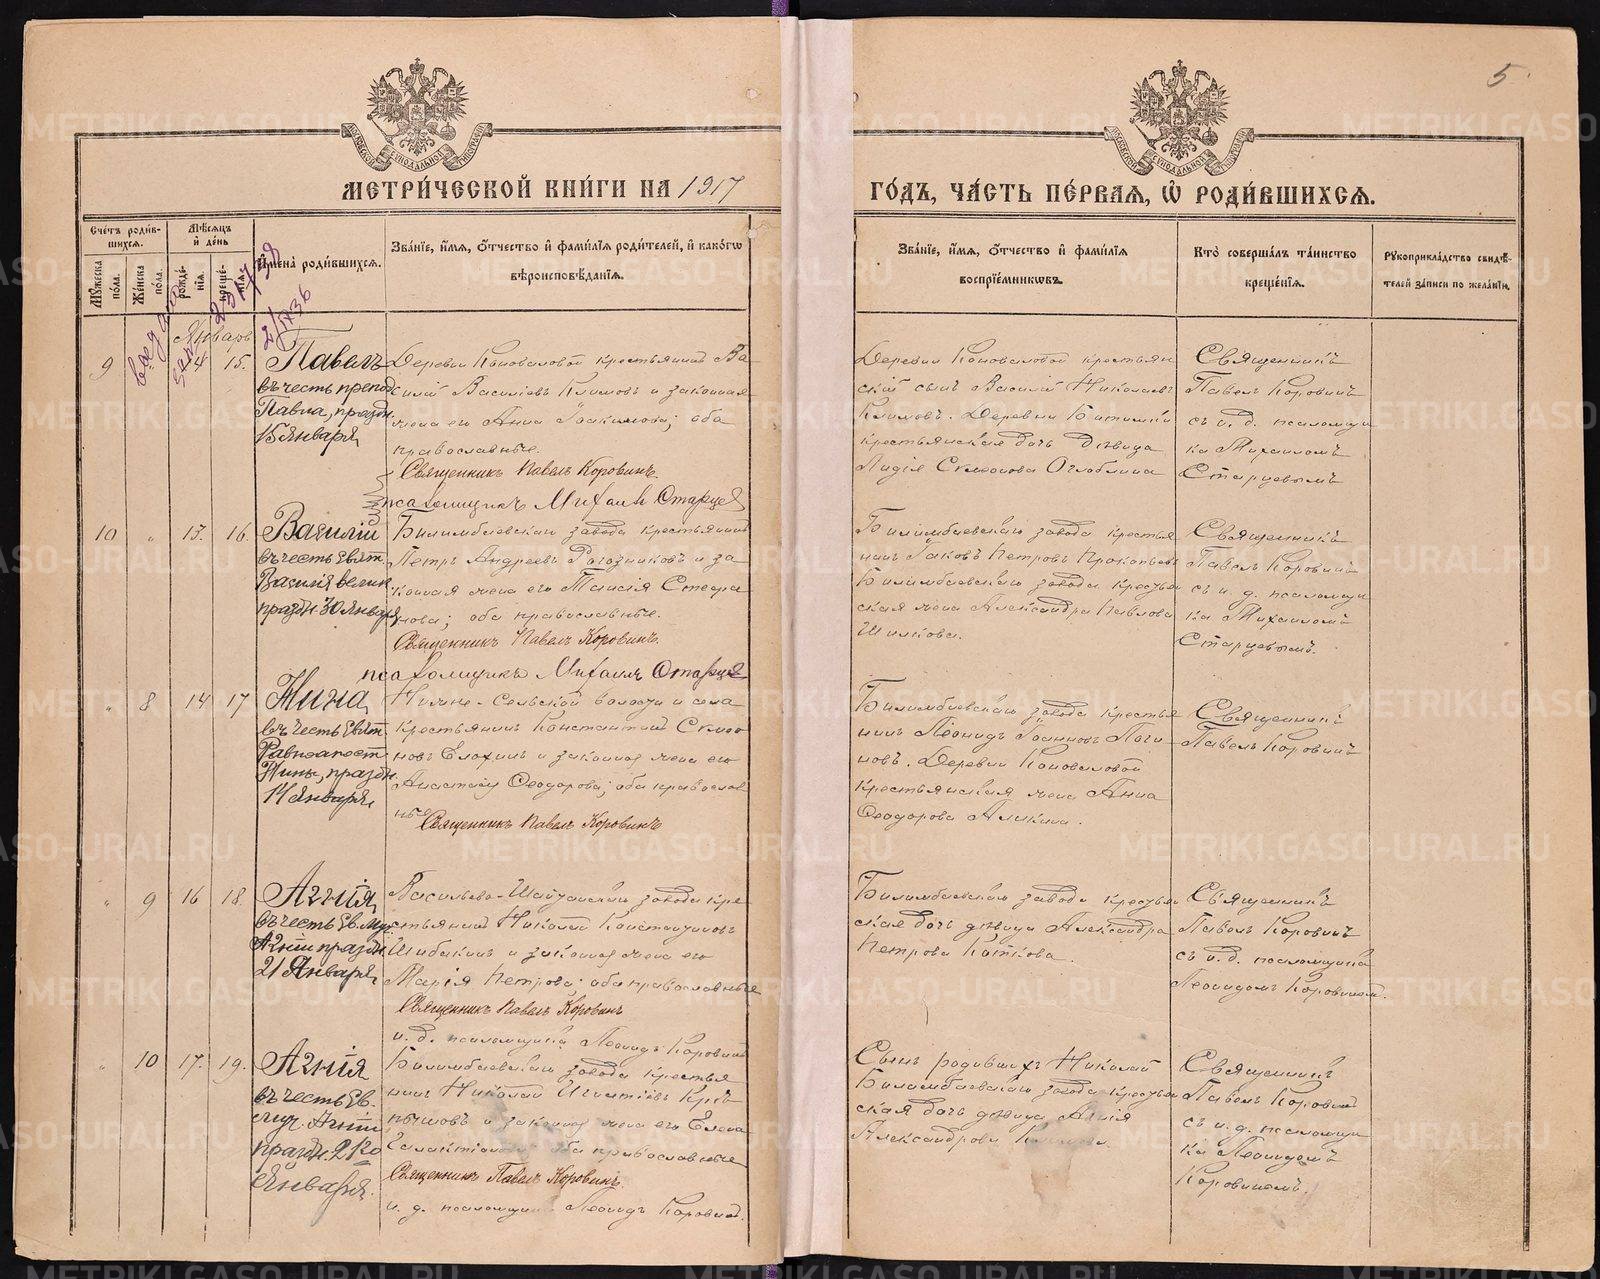 5
МОСКОВСКОЙ СѴНОДАЛЬНОЙ ТИПОГРАФІИ
МЕТРИ́ЧЕСКОЙ КНИ́ГИ НА 1917
ГО́ДЪ, ЧА́СТЬ ПЕ́РВАЯ, Ѡ҆ РОДИ́ВШИХСЯ.
Сче́тъ роди́вшихся.
Мѣ́сяцъ и҆ де́нь
Мꙋ́жеска по́ла.
Же́нска по́ла.
рожде́нїя.
креще́нїя.
И҆мена̀ роди́вшихся.
Зва́нїе, и҆́мя, ѻ҆́тчество и҆ фами́лїя роди́телей, и҆ како́гѡ вѣроисповѣ́данїя.
Зва́нїе, и҆́мя, ѻ҆́тчество и҆ фами́лїя воспрїе́мникѡвъ.
Кто̀ соверша́лъ та́инство креще́нїя.
Рꙋкоприкла́дство свидѣ́телей за́писи по жела́нїю.
Январь
9
4
15.
Павелъ
въ честь препод.
Павла, праздн.
15 января
Деревни Коноваловой крестьянинъ Ва
силій Васильевъ Климовъ и законная
жена его Анна Іоакимова; оба
православные.
Священникъ Павелъ Коровинъ.
псаломщикъ Михаилъ Старцев
Деревни Коноваловой крестьян
скій сынъ Василій Николаевъ
Климовъ. Деревни Битимки
крестьянская дочь дѣвица
Лидія Симонова Оглоблина
Священникъ
Павелъ Коровинъ
съ и. д. псаломщи
ка Михаиломъ
Старцевымъ
10
"
13.
16.
Василій
въ честь Свят.
Василія велик
праздн 30 января
Билимбаевскаго завода крестьянинъ
Петръ Андреевъ Рогозниковъ и за
конная жена его Таисія Стефа
нова; оба православные.
Священникъ Павелъ Коровинъ.
псаломщикъ Михаилъ Старцев
Билимбаевскаго завода крестья
нинъ Іаковъ Петровъ Прокопьевъ
Билимбаевскаго завода крестья
ская жена Александра Павлова
Шилкова.
Священникъ
Павелъ Коровинъ
съ и. д. псаломщи
ка Михаиломъ
Старцевымъ.
"
8
14
17
Нина
въ честь Свят.
Равноапост.
Нины, праздн.
14 января
Нижне-Сельской волости и села
крестьянинъ Константинъ Симо
новъ Елохинъ и законная жена его
Анастасія Ѳеодорова; оба православ
ные
Священникъ Павелъ Коровинъ
Билимбаевскаго завода крестья
нинъ Леонидъ Іоанновъ Поги
новъ. Деревни Коноваловой
крестьянская жена Анна
Ѳеодорова Аликина.
Священникъ
Павелъ Коровинъ
"
9
16
18.
Агнія
въ честь Св. муч.
Агніи праздн.
21 Января
Васильево-Шайтанскаго завода кре
стьянинъ Николай Константиновъ
Шибакинъ и законная жена его
Марія Петрова; оба православные
Священникъ Павелъ Коровинъ
и. д. псаломщика Леонидъ Коровинъ
Билимбаевскаго завода крестья
ская дочь дѣвица Александра
Петрова Каткова.
Священникъ
Павелъ Коровинъ
съ и. д. псаломщика
Леонидомъ Коровинымъ.
"
10
17.
19.
Агнія
въ честь Св.
муч. Агніи
праздн. 21го
Января.
Билимбаевскаго завода крестья
нинъ Николай Игнатіевъ
и законная жена его Елена
оба православные
Священникъ Павелъ Коровинъ.
и. д. псаломщика Леонидъ Коровинъ.
Сынъ родившихъ Николай
Билимбаевскаго завода крестья
ская дочь дѣвица Агнія
Александрова
Священникъ
Павелъ Коровинъ
съ и. д. псаломщи
ка Леонидомъ
Коровинымъ.
METRIKI.GASO-URAL.RU